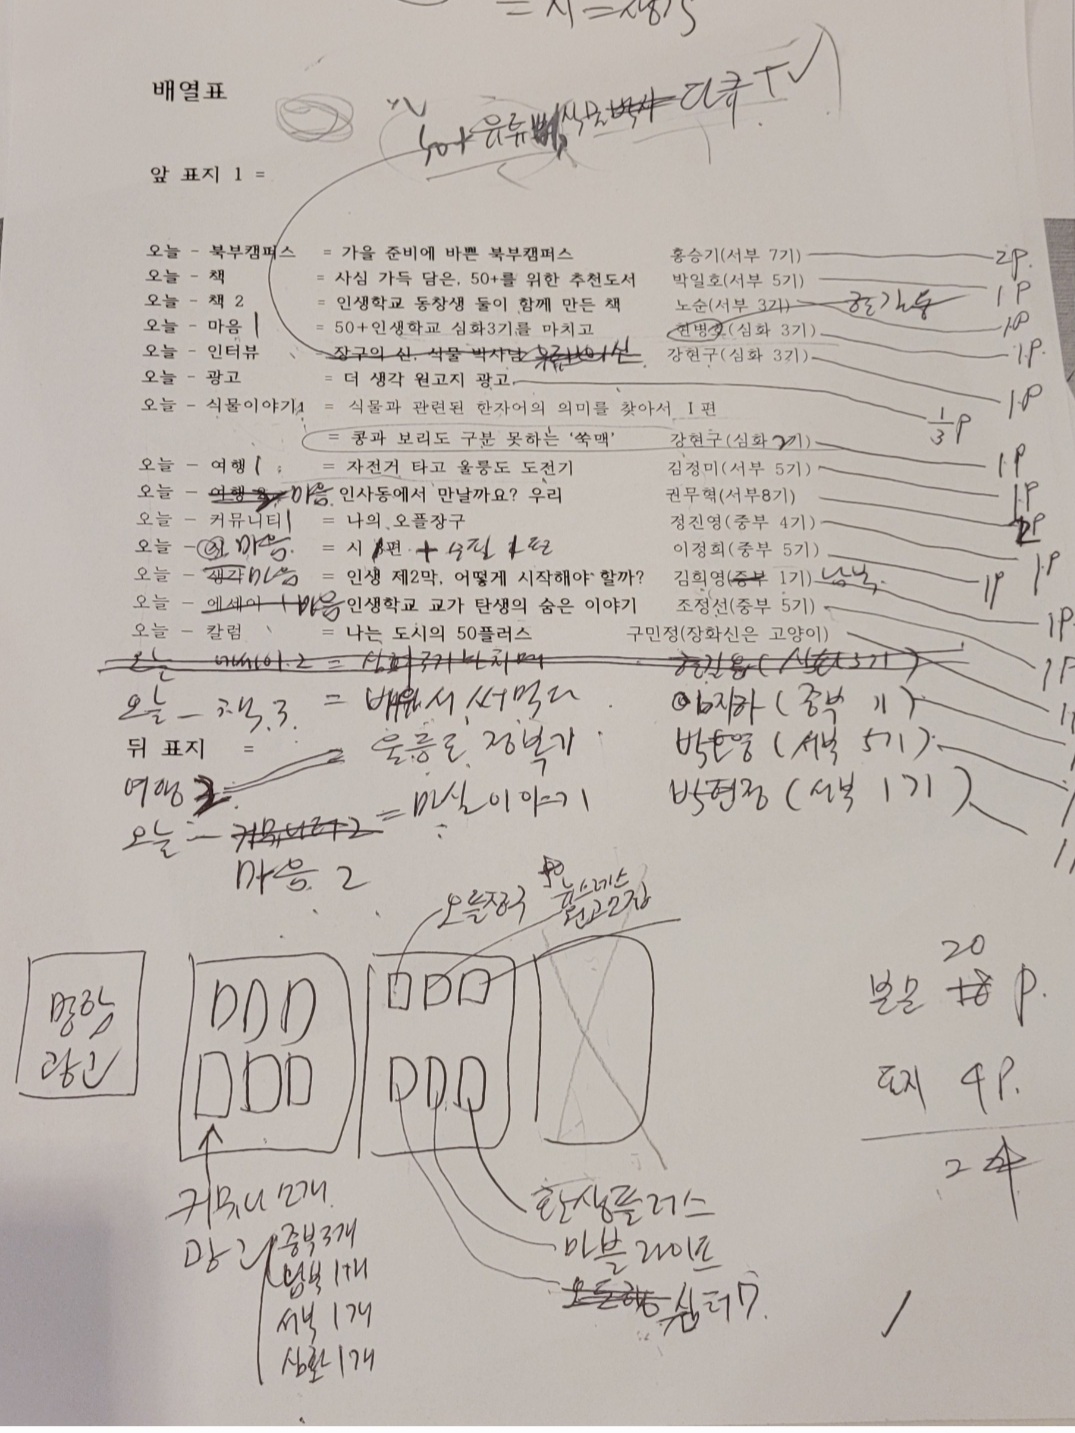 배열표
50+ 유튜버, 식물박사 다큐TV
앞 표지 1 =
오늘 - 북부캠퍼스 = 가을 준비에 바쁜 북부캠퍼스 홍승기(서부 7기) 2p.
오늘 - 책 = 사심 가득 담은, 50+를 위한 추천도서 박일호(서부 5기) 1P
오늘 - 책 2 = 인생학교 동창생 둘이 함께 만든 책 노순(서부 3기) 한길동 1P
오늘 - 마음 1 = 50+인생학교 심화3기를 마치고 (심화 3기) 1P.
오늘 - 인터뷰 = 장구의 신, 식물 박사님 강현구(심화 3기) 1P
오늘 - 광고 = 더 생각 원고지 광고 1/3 P
오늘 - 식물이야기1 = 식물과 관련된 한자어의 의미를 찾아서 I 편
= 콩과 보리도 구분 못하는 '쑥맥' 강현구(심화 기) 1P
오늘 - 여행 1 ; = 자전거 타고 울릉도 도전기 김정미(서부 5기) 1P
오늘 - 여행 2 마음 인사동에서 만날까요? 우리 권무혁(서부8기) 2P
오늘 - 커뮤니티1 = 나의 오플장구 정진영(중부 4기) 1P
오늘 - 마음 = 시 1편 + 수필 1편 이정희(중부 5기) 1P
오늘 - 생각 마음 = 인생 제2막, 어떻게 시작해야 할까? 김희영(중부 1기) 남부 1P
오늘 - 에세이 1 마음 인생학교 교가 탄생의 숨은 이야기 조정선(중부 5기) 1P
오늘 - 칼럼 = 나는 도시의 50플러스 구민정(장화신은 고양이)
오늘 에세이.2 = (심화3기)
오늘 - 책.3 = 배워서 써먹다 (중부 기)
뒤 표지 = 울릉도 정복기 (서부 5기)
여행 2 박현정(서부 1기)
오늘 - 커뮤니티2 = 마실이야기
마음 2
오플장구
원고모집
명함
광고
20
본문 18 P.
표지 4P.
24
커뮤니 7개
중부3개
남부1개
서부1개
심화1개
한생플러스
마블라이프
쉼터7.